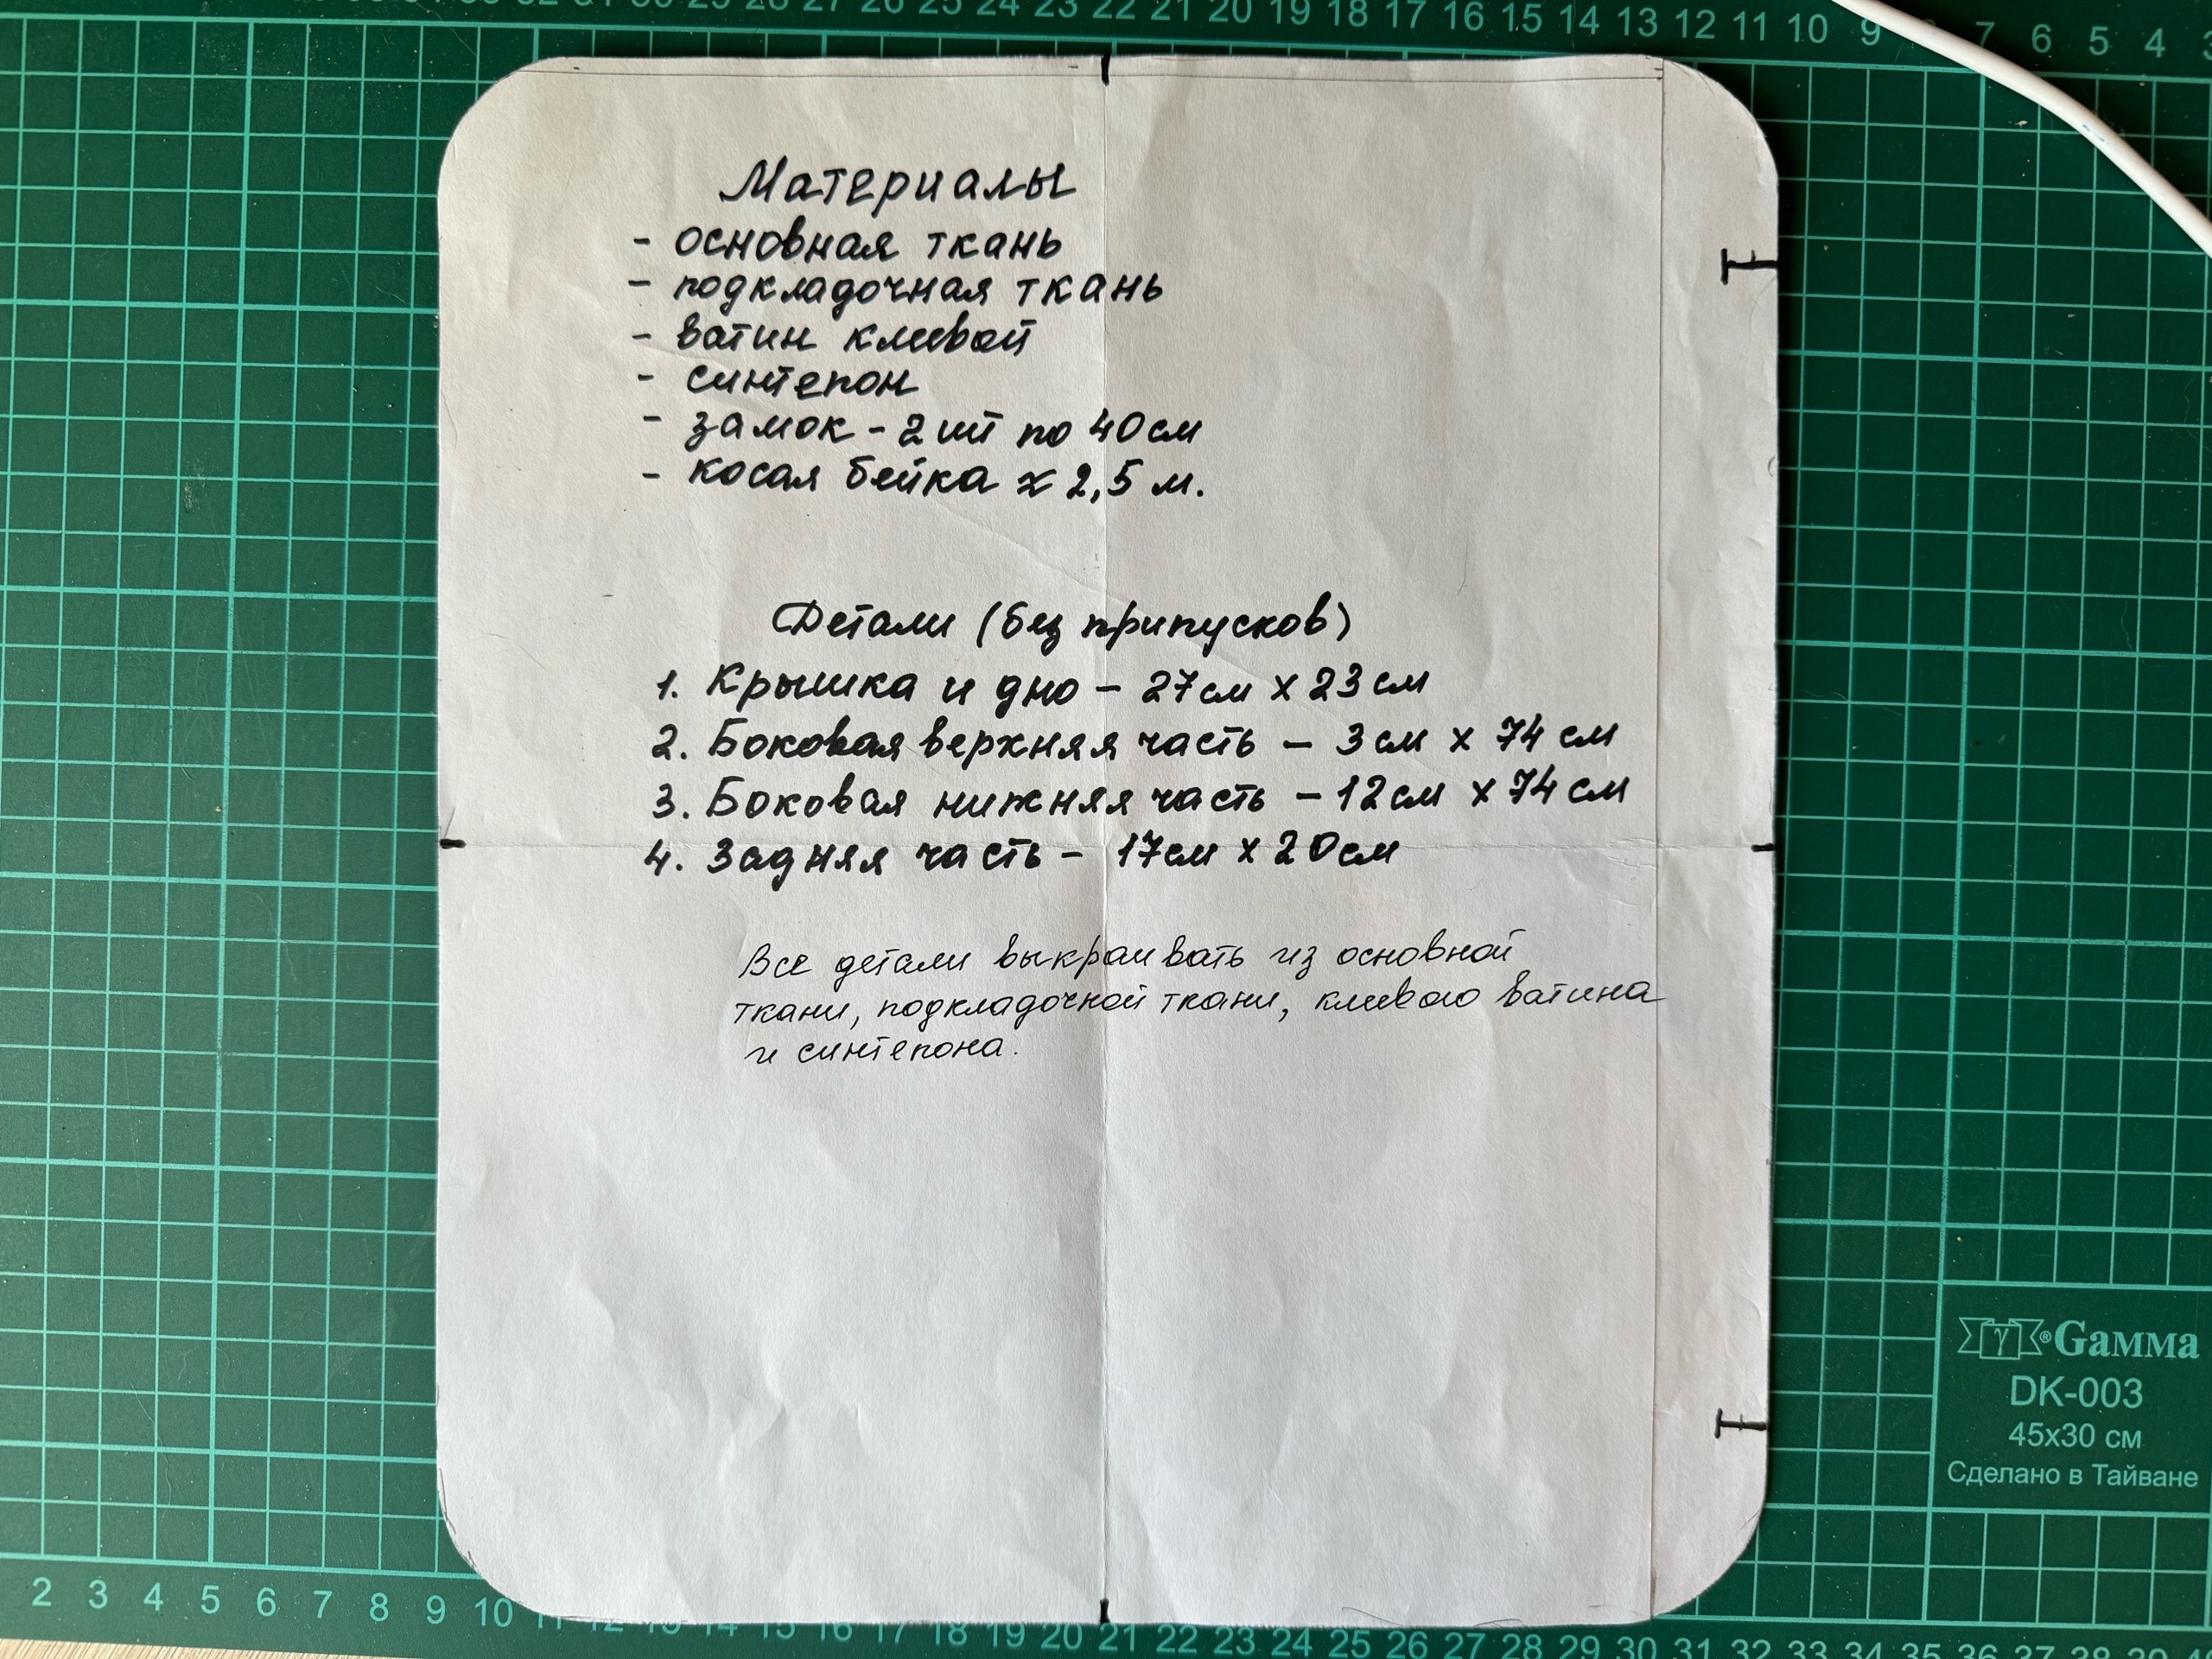 29 28 27 26 25 24 23 22 21 20 19 18 17 16 15 14 13 12 11 10 9 7 6 5 4
Материалы
- основная ткань
- подкладочная ткань
- ватин клеевой
- синтепон
- замок - 2 шт по 40 см
- косая бейка ≈ 2,5 м.
Детали (без припусков)
1. Крышка и дно - 27см х 23 см
2. Боковая верхняя часть - 3см х 74 см
3. Боковая нижняя часть - 12см х 74 см
4. Задняя часть - 17см х 20см
Все детали выкраивать из основной
ткани, подкладочной ткани, клеевого ватина
и синтепона.
γ® Gamma
DK-003
45x30 см
Сделано в Тайване
2 3 4 5 6 7 8 9 10 11 12 13 14 15 16 17 18 19 20 21 22 23 24 25 26 27 28 29 30 31 32 33 34 35 36 37 38